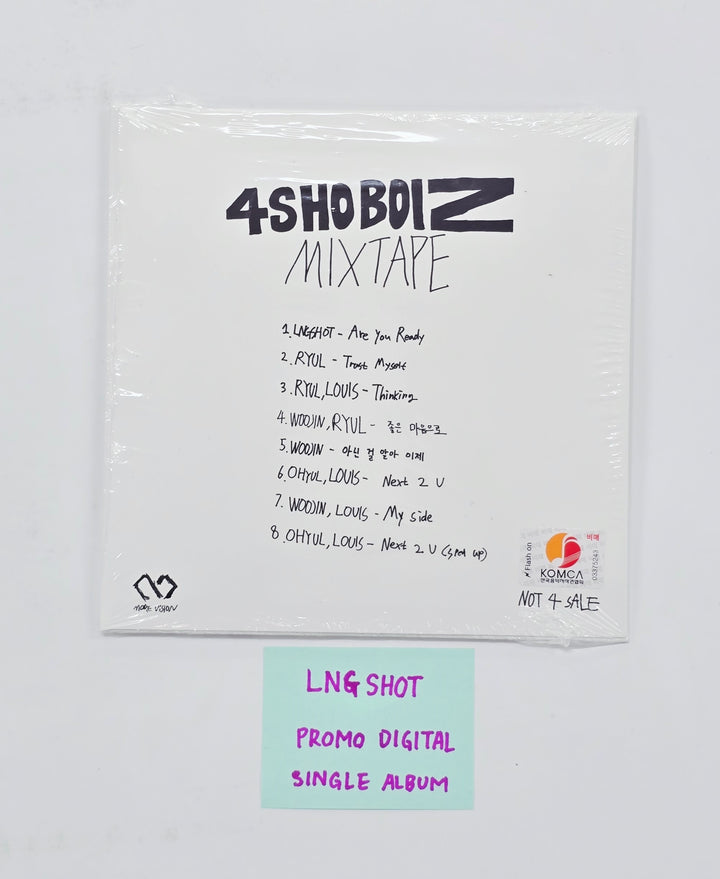 4SHOBOIZ
MIXTAPE
1. LNGSHOT - Are You Ready
2. RYUL - Trust Myself
3. RYUL, LOUIS - Thinking
4. WOOJIN, RYUL - 좋은 마음으로
5. WOOJIN - 아닌 걸 알아 이제
6. OHYUL, LOUIS - Next 2 U
7. WOOJIN, LOUIS - My side
8. OHYUL, LOUIS - Next 2 U (sped up)
MORE VISION
Flash on
비매
03375243
KOMCA
한국음악저작권협회
NOT 4 SALE
LNGSHOT
PROMO DIGITAL
SINGLE ALBUM